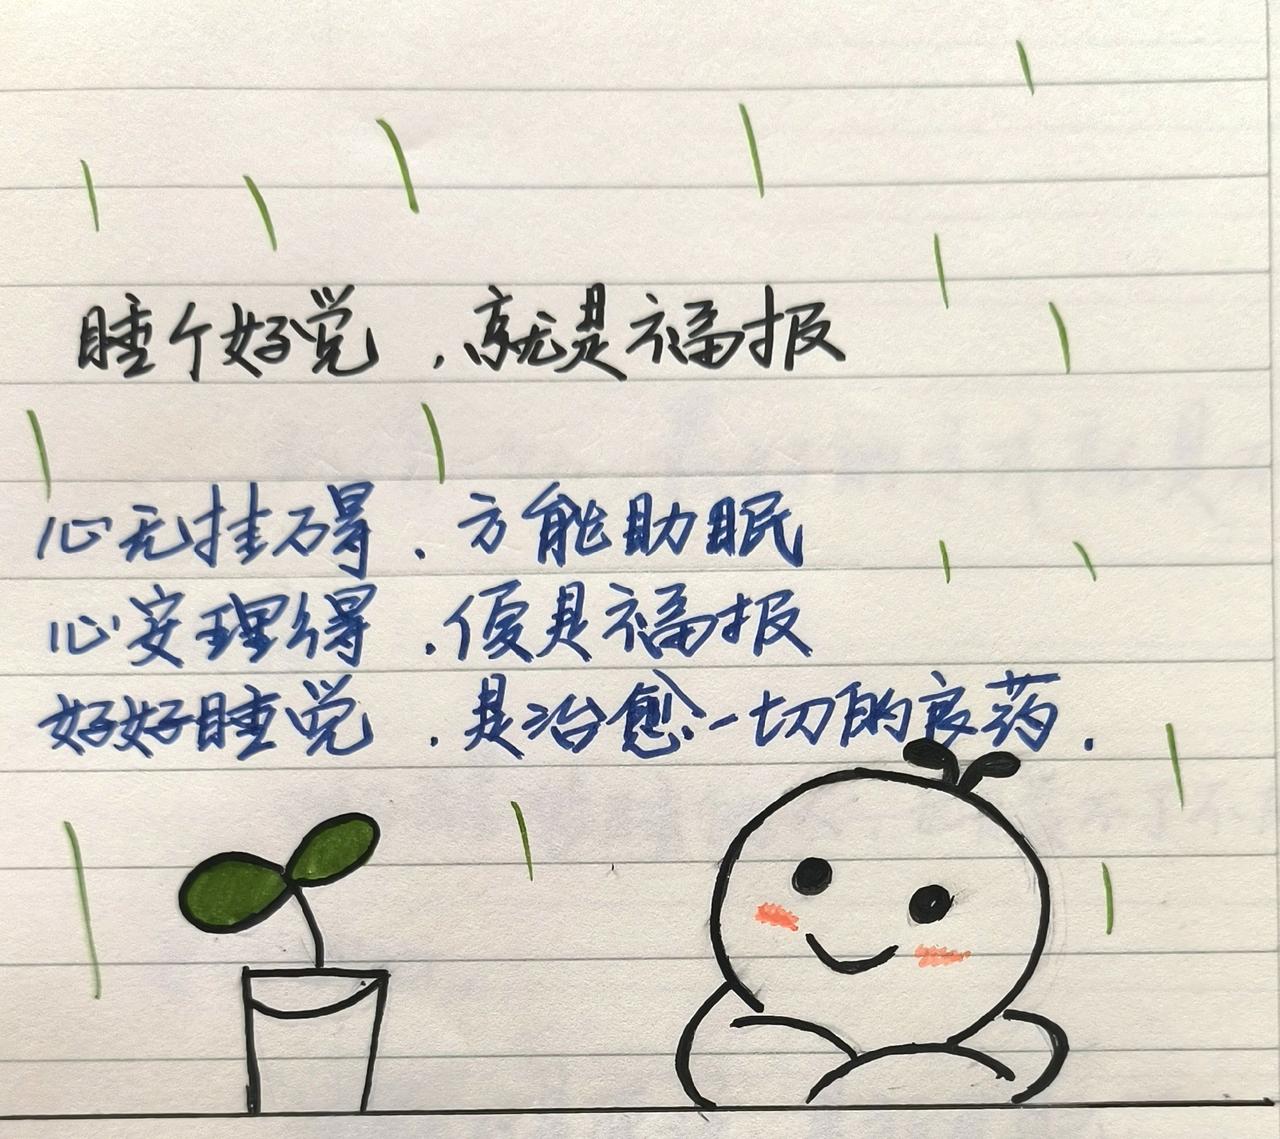 睡个好觉，就是福报
心无挂碍，方能助眠
心安理得，便是福报
好好睡觉，是治愈一切的良药.